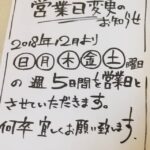 営業日変更の
お知らせ
2018年12月より
日月木金土曜日
の週5日間を営業日と
させていただきます。
何卒宜しくお願い致します